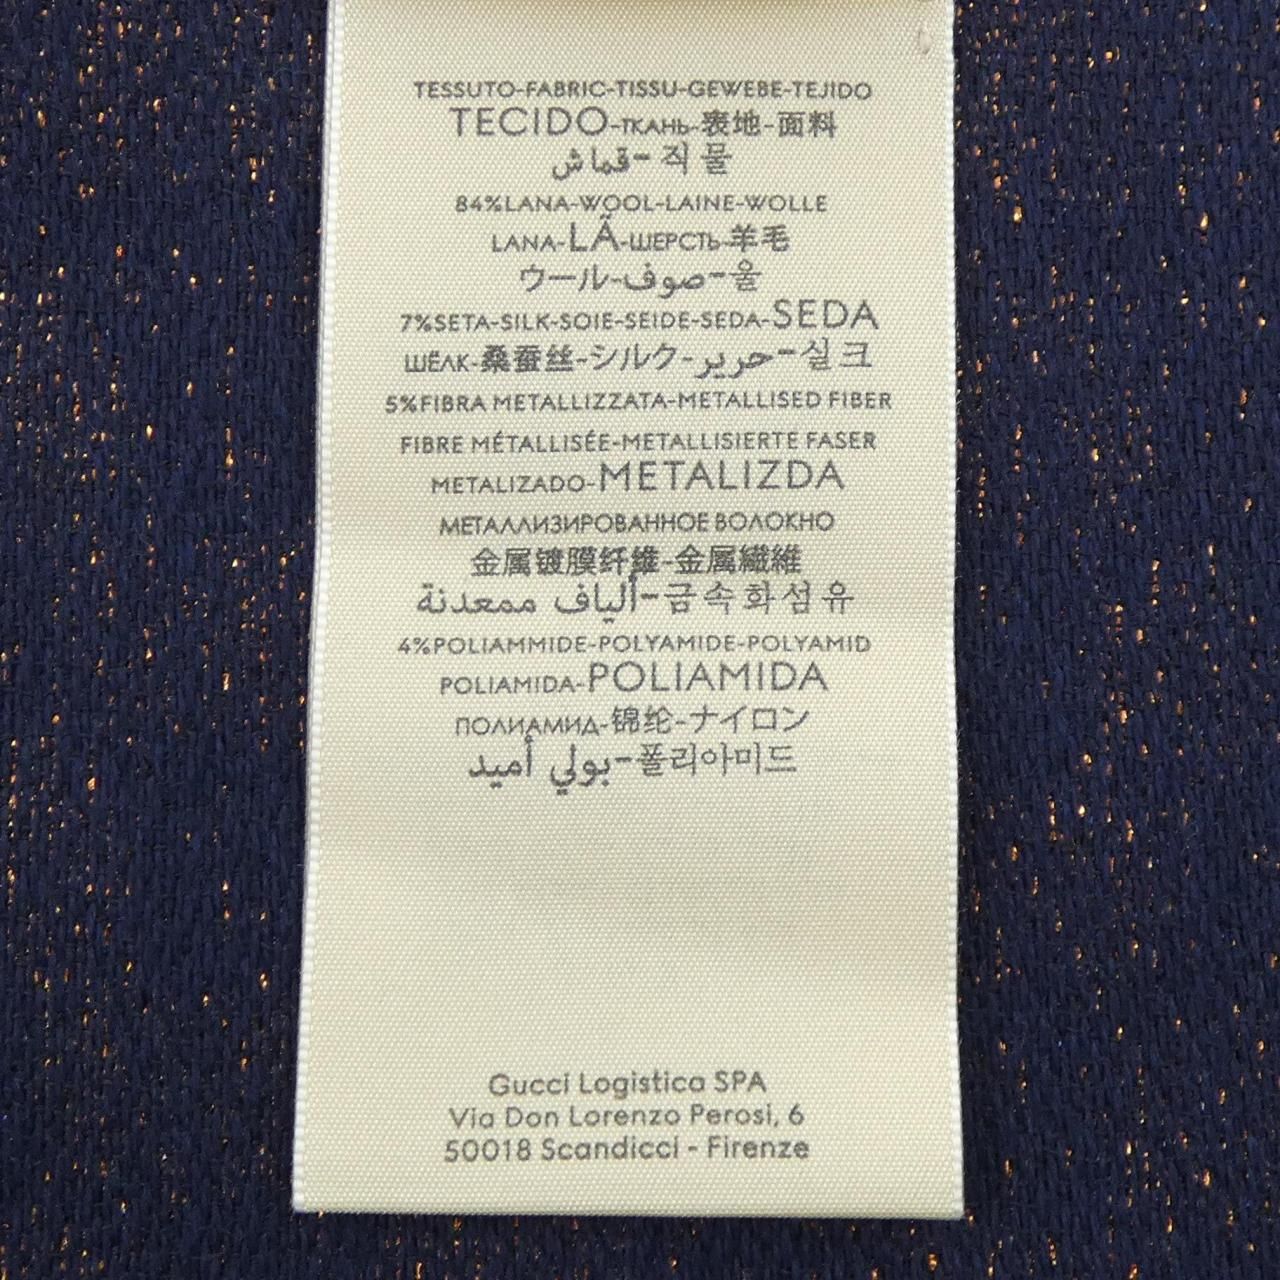 TESSUTO-FABRIC-TISSU-GEWEBE-TEJIDO
TECIDO-ТКАНЬ-表地-面料
قماش-직물
84%LANA-WOOL-LAINE-WOLLE
LANA-LÃ-ШЕРСТЬ-羊毛
ウール-صوف-울
7%SETA-SILK-SOIE-SEIDE-SEDA-SEDA
ШЁЛК-桑蚕丝-シルク-حرير-실크
5%FIBRA METALLIZZATA-METALLISED FIBER
FIBRE MÉTALLISÉE-METALLISIERTE FASER
METALIZADO-METALIZDA
МЕТАЛЛИЗИРОВАННОЕ ВОЛОКНО
金属镀膜纤维-金属繊維
ألياف ممعدنة-금속화섬유
4%POLIAMMIDE-POLYAMIDE-POLYAMID
POLIAMIDA-POLIAMIDA
ПОЛИАМИД-锦纶-ナイロン
بولي أميد-폴리아미드
Gucci Logistica SPA
Via Don Lorenzo Perosi, 6
50018 Scandicci - Firenze